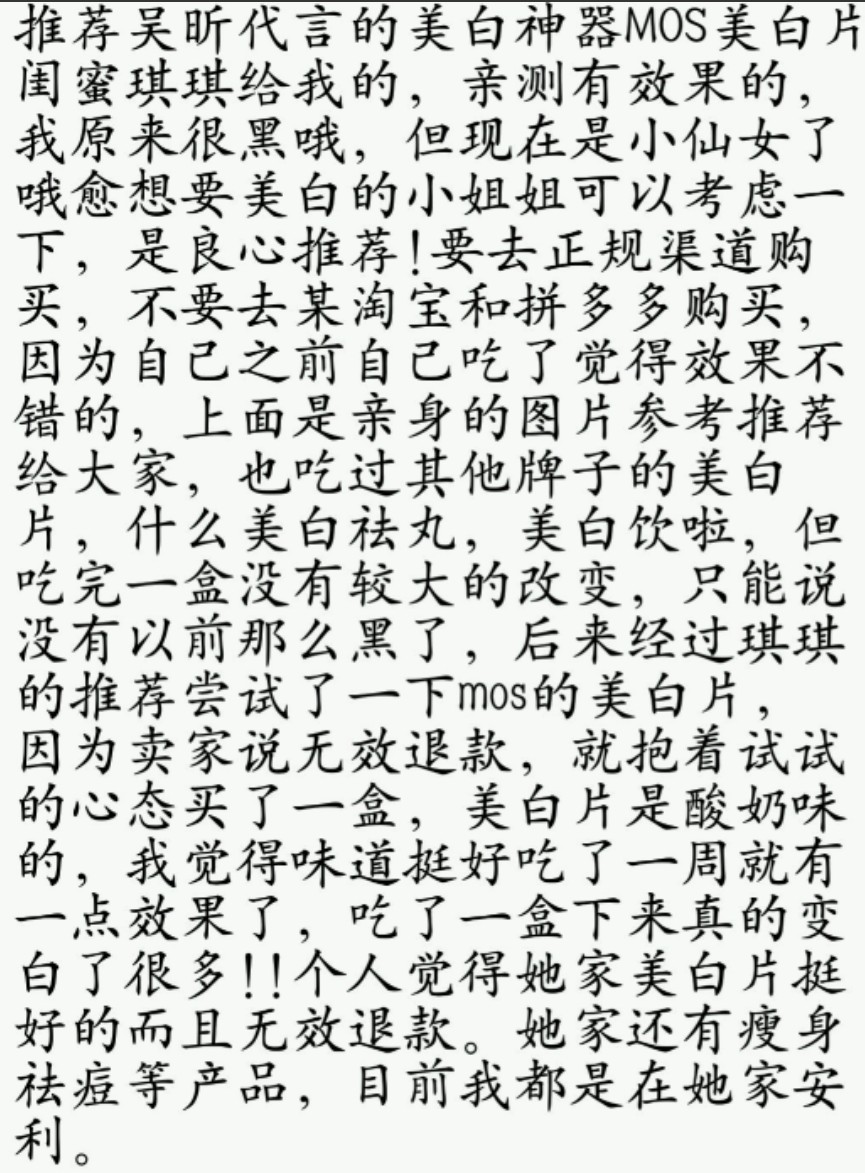 推荐吴昕代言的美白神器MOS美白片
闺蜜琪琪给我的，亲测有效果的，
我原来很黑哦，但现在是小仙女了
哦愈想要美白的小姐姐可以考虑一
下，是良心推荐!要去正规渠道购
买，不要去某淘宝和拼多多购买，
因为自己之前自己吃了觉得效果不
错的，上面是亲身的图片参考推荐
给大家，也吃过其他牌子的美白
片，什么美白祛丸，美白饮啦，但
吃完一盒没有较大的改变，只能说
没有以前那么黑了，后来经过琪琪
的推荐尝试了一下mos的美白片，
因为卖家说无效退款，就抱着试试
的心态买了一盒，美白片是酸奶味
的，我觉得味道挺好吃了一周就有
一点效果了，吃了一盒下来真的变
白了很多!!个人觉得她家美白片挺
好的而且无效退款。她家还有瘦身
祛痘等产品，目前我都是在她家安
利。